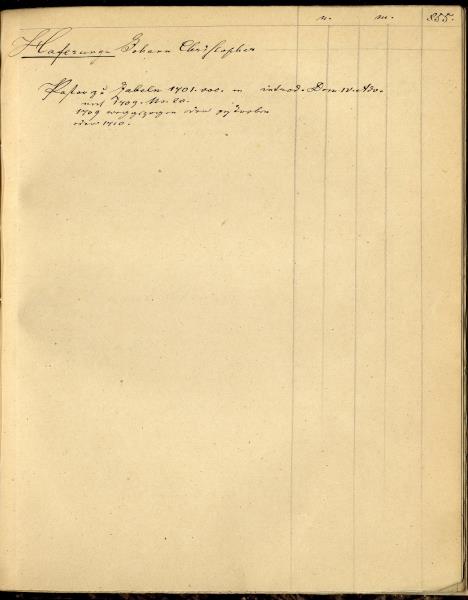 n. m. 855.
Haferung Johann Christopher
Pastor zu Zabeln 1701. voc. m introd. Dom. IV. Adv.
1709. No. 20.
1709 weggezogen oder gestorben
oder 1710.